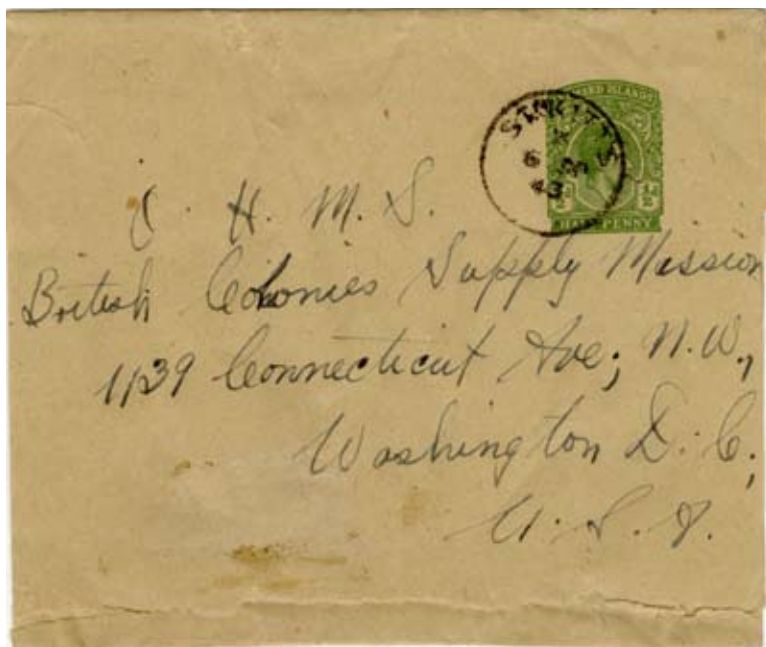 WARD ISLANDS
ST. KITTS
6
43
½d
PENNY
O. H. M. S.
British Colonies Supply Mission
1139 Connecticut Ave; N.W.,
Washington D. C;
U. S. A.